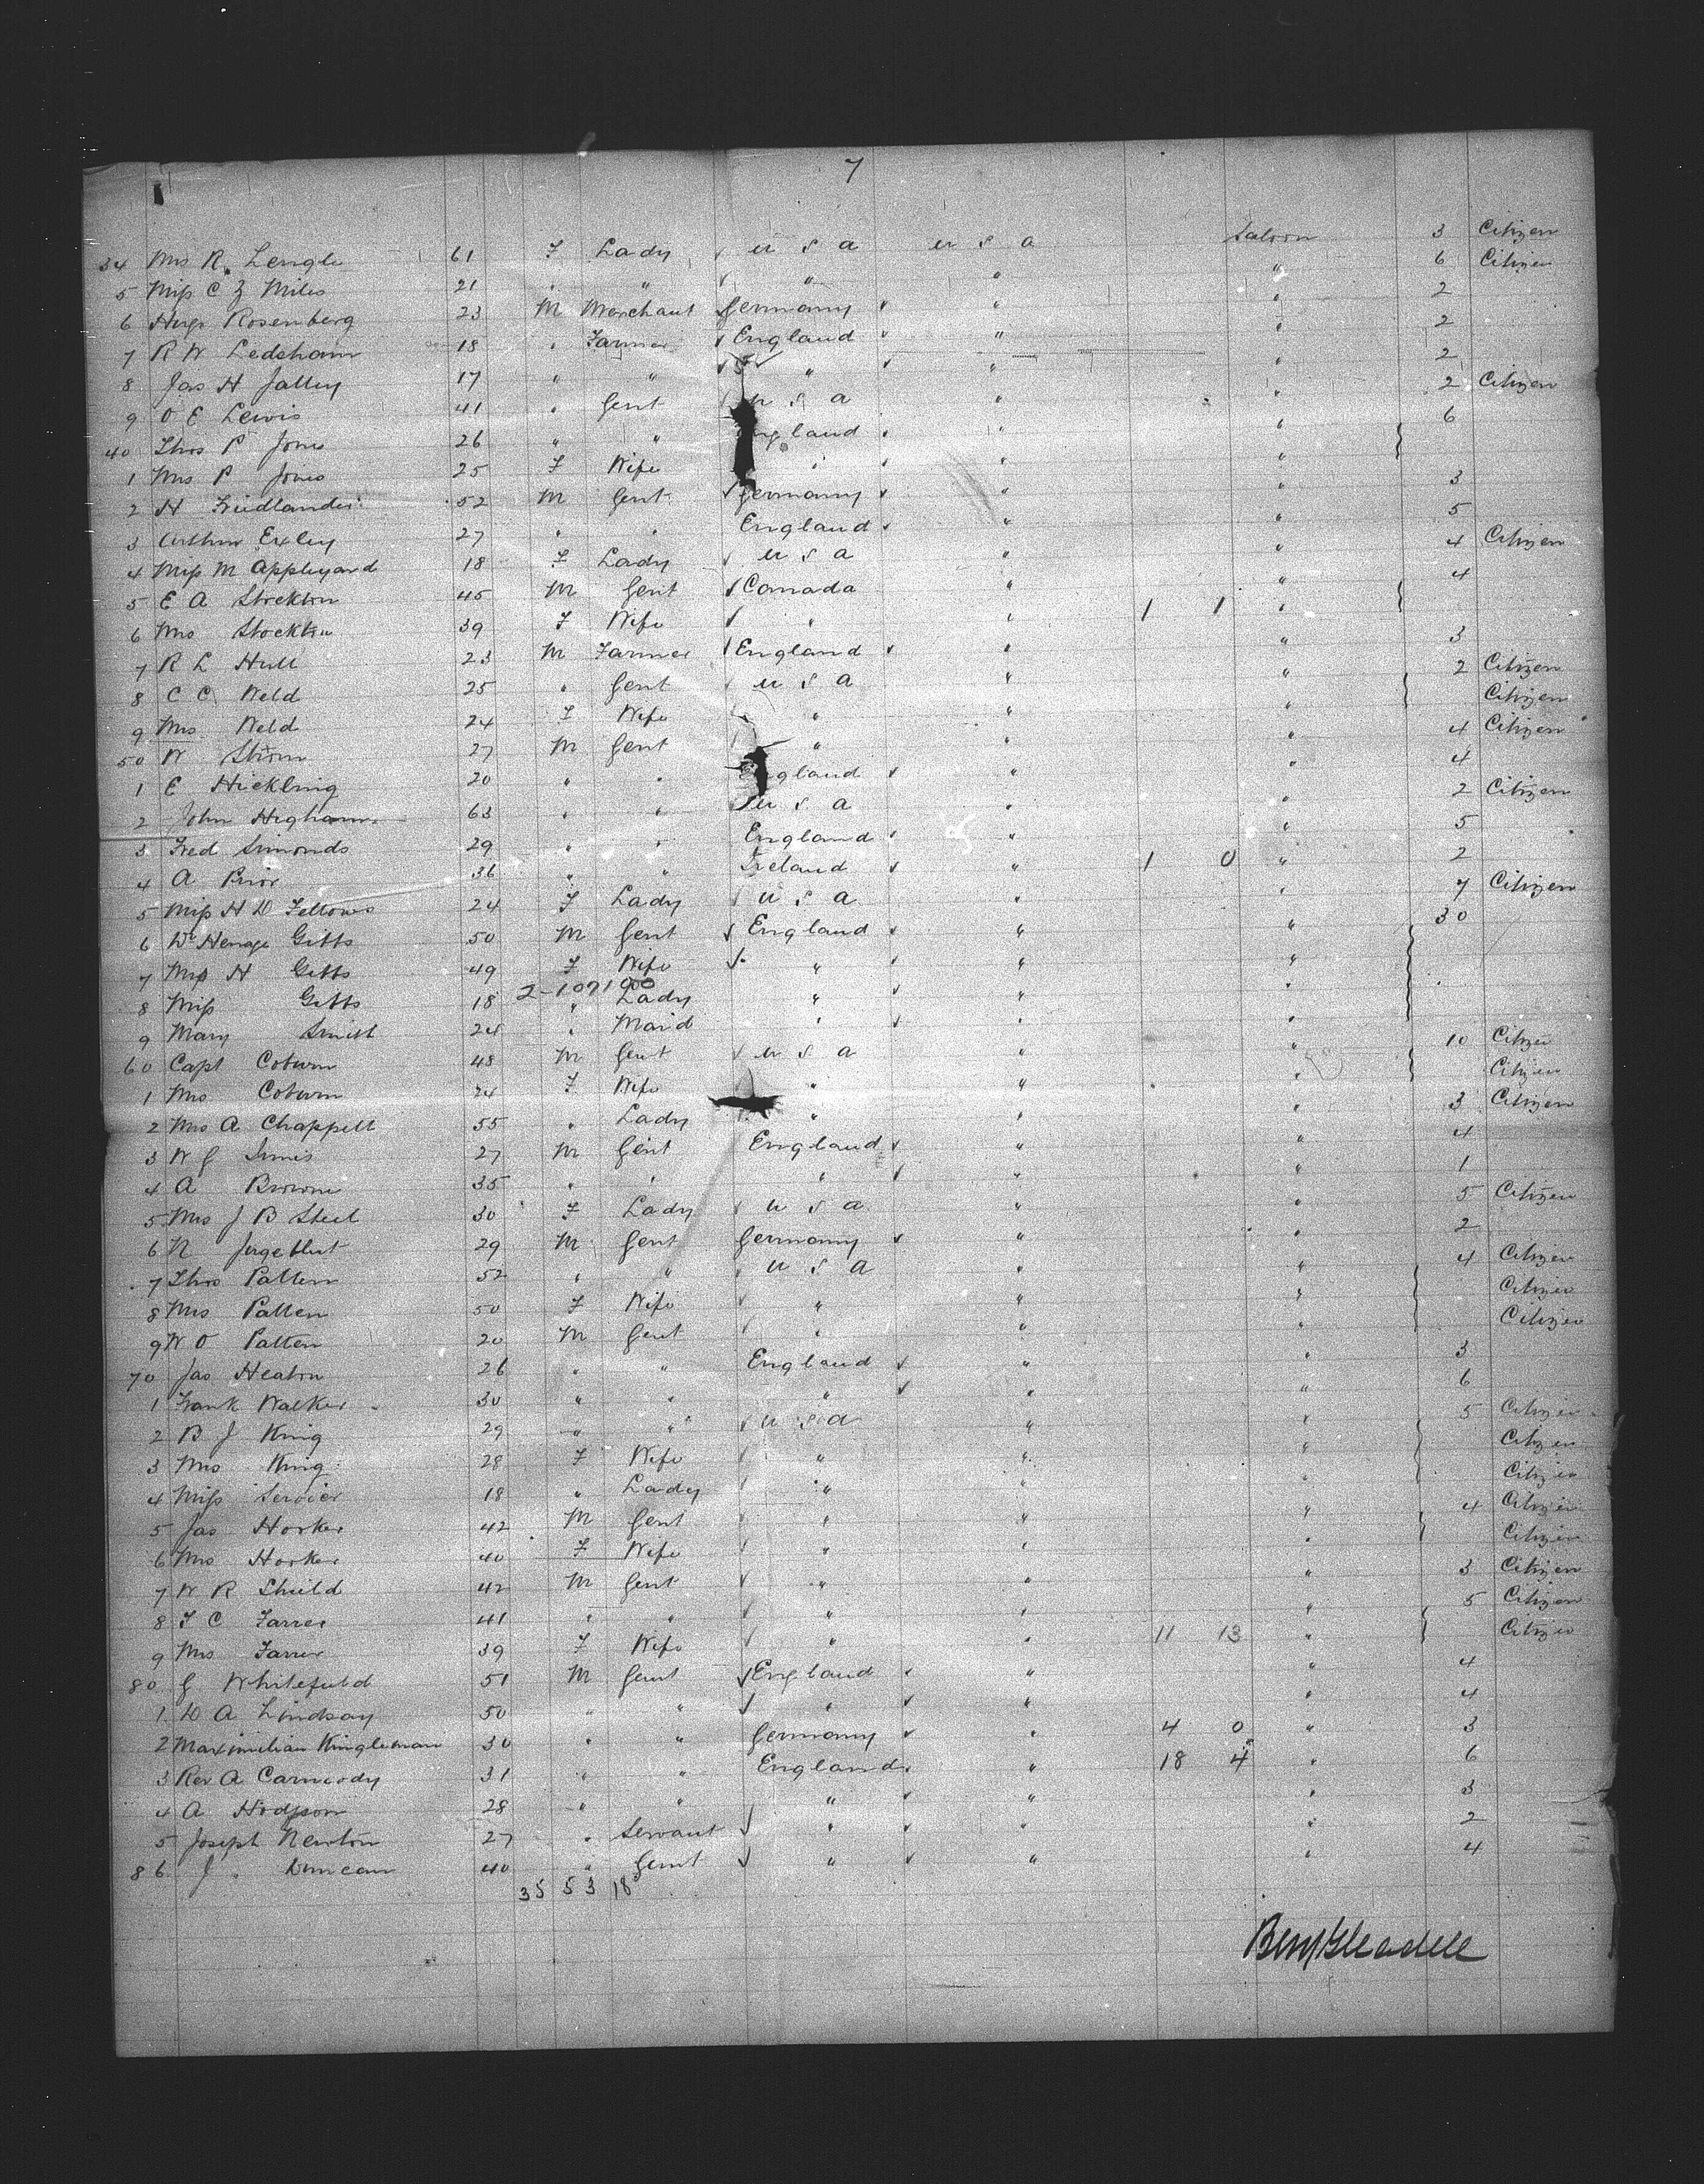 7
34 Mrs R. Lengle 61 F Lady U S A U S A Saloon 3 Citizen
5 Miss C Z Miles 21 " " " " " 6 Citizen
6 Hugo Rosenberg 23 M Merchant Germany " " 2
7 R W Ledsham 18 " Farmer England " " 2
8 Jas H Jalley 17 " " " " " 2
9 O E Lewis 41 " Gent U S A " " 2 Citizen
40 Thos P Jones 26 " " England " " 6
1 Mrs P Jones 25 F Wife " " "
2 H Friedlander 52 M Gent Germany " " 3
3 Arthur Exley 27 " " England " " 5
4 Miss M Appleyard 18 F Lady U S A " " 4 Citizen
5 E A Stockton 45 M Gent Canada " " 4
6 Mrs Stockton 39 F Wife " " 1 1 "
7 R L Hull 23 M Farmer England " " 3
8 C C Weld 25 " Gent U S A " " 2 Citizen
9 Mrs Weld 24 F Wife " " " Citizen
50 W Strom 27 M Gent " " " 4 Citizen
1 E Hickling 20 " " England " " 4
2 John Higham 63 " " U S A " " 2 Citizen
3 Fred Simonds 29 " " England " " 5
4 A Prior 36 " " Ireland " 1 0 " 2
5 Miss H D Fellows 24 F Lady U S A " " 7 Citizen
6 Dr Henage Gibbs 50 M Gent England " " 30
7 Mrs H Gibbs 49 F Wife " " "
8 Miss Gibbs 18 " Lady " " "
9 Mary Smith 24 " Maid " " "
60 Capt Coburn 48 M Gent U S A " " 10 Citizen
1 Mrs Coburn 24 F Wife " " " Citizen
2 Mrs A Chappell 55 " Lady " " " 3 Citizen
3 W G Innis 27 M Gent England " " 4
4 A Browne 35 " " " " " 1
5 Mrs J B Steel 30 F Lady U S A " " 5 Citizen
6 N Jorgeblut 29 M Gent Germany " " 2
7 Thos Patten 52 " " U S A " " 4 Citizen
8 Mrs Patten 50 F Wife " " " Citizen
9 W O Patten 20 M Gent " " " Citizen
70 Jas Heaton 26 " " England " " 3
1 Frank Walker 30 " " " " " 6
2 B J King 29 " " U S A " " 5 Citizen
3 Mrs King 28 F Wife " " " Citizen
4 Miss Servier 18 " Lady " " " Citizen
5 Jas Hooker 42 M Gent " " " 4 Citizen
6 Mrs Hooker 40 F Wife " " " Citizen
7 W R Shield 42 M Gent " " " 3 Citizen
8 T C Farrer 41 " " " " " 5 Citizen
9 Mrs Farrer 39 F Wife " " 11 13 " Citizen
80 G Whitefield 51 M Gent England " " 4
1 D A Lindsay 50 " " " " " 4
2 Maximilian Kingleman 30 " " Germany " 4 0 " 3
3 Rev A Carmody 31 " " England " 18 4 " 6
4 A Hodgson 28 " " " " " 3
5 Joseph Newton 27 " Servant " " " 2
86 J. Duncan 40 " Gent " " " 4
35 53 18
Benj Gleadell